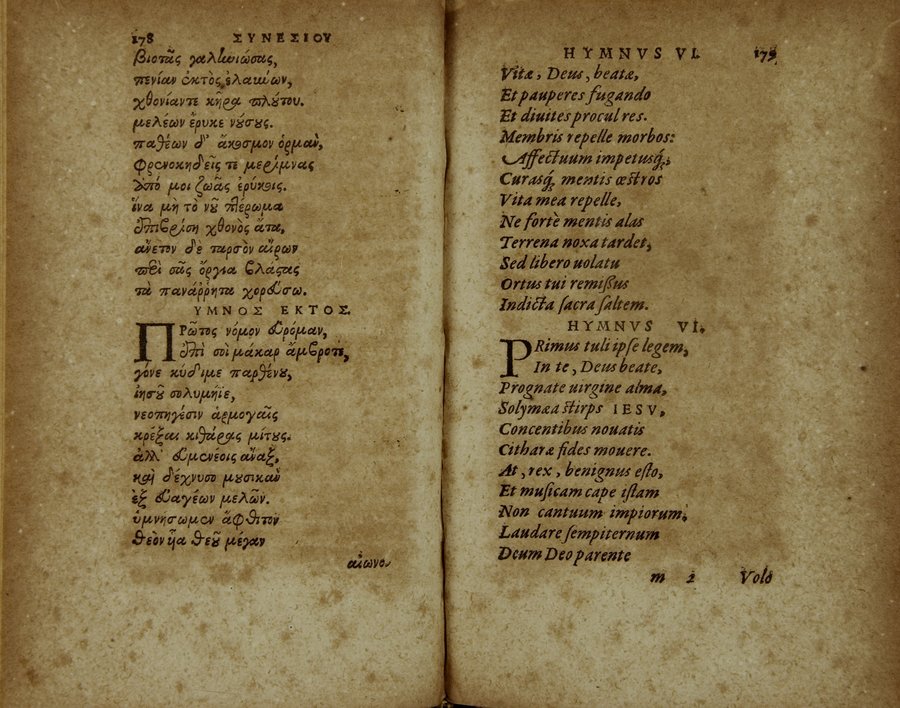 178 ΣΥΝΕΣΙΟΥ
βιοτᾶς γαληνιώσας,
πενίαν ἐκτὸς ἐλαύνων,
χθονίαντε κῆρα πλούτου.
μελέων ἔρυκε νούσους.
παθέων δ' ἄκοσμον ὁρμὰν,
φρενοκηδεῖς τε μερίμνας
ἀπό μοι ζωᾶς ἐρύκοις.
ἵνα μὴ τὸ νοῦ πτέρωμα
ἐπιβρίση χθονὸς ἄτα,
ἄνετον δὲ ταρσὸν αἴρων
περὶ σᾶς ὄργια βλάστας
τὰ πανάῤῥητα χορεύσω.
ΥΜΝΟΣ ΕΚΤΟΣ.
ΠΡῶτος νόμον εὑρόμαν,
ἐπὶ σοὶ μάκαρ ἄμβροτε,
γόνε κύδιμε παρθένου,
ἰησοῦ σολυμήϊε,
νεοπηγέσιν ἁρμογαῖς
κρέξαι κιθάρας μίτους.
ἀλλ' εὐμενέοις ἄναξ,
καὶ δέχνυσο μουσικὰν
ἐξ εὐαγέων μελῶν.
ὑμνήσωμεν ἄφθιτον
θεὸν ἧα θεοῦ μέγαν
αἰωνο-
HYMNVS VI. 179
Vitæ, Deus, beatæ,
Et pauperes fugando
Et diuites procul res.
Membris repelle morbos:
Affectuum impetusq́;,
Curasq́; mentis œstros
Vita mea repelle,
Ne fortè mentis alas
Terrena noxa tardet,
Sed libero uolatu
Ortus tui remißus
Indicta sacra saltem.
HYMNVS VI.
PRimus tuli ipse legem,
In te, Deus beate,
Prognate uirgine alma,
Solymæa stirps IESV,
Concentibus nouatis
Citharæ fides mouere.
At, rex, benignus esto,
Et musicam cape istam
Non cantuum impiorum,
Laudare sempiternum
Deum Deo parente
m 2 Volo